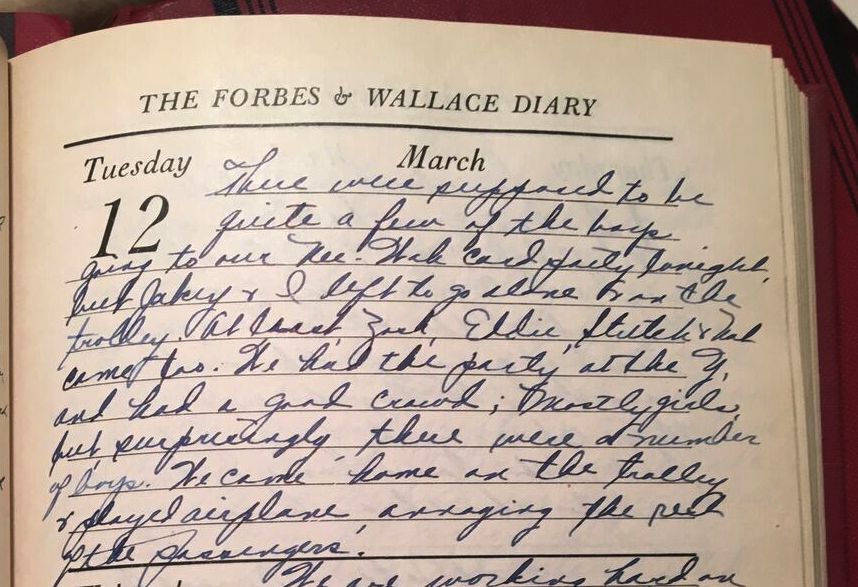 THE FORBES & WALLACE DIARY
Tuesday March
12
There were supposed to be
quite a few of the boys
going to our card party tonight,
but Jakey & I left to go alone on the
trolley. At least Eddie,
came too. We had the party at the Y,
and had a good crowd; mostly girls,
but surprisingly there were a number
of boys. We came home on the trolley
& played airplane annoying the rest
of the passengers.
We are working hard on